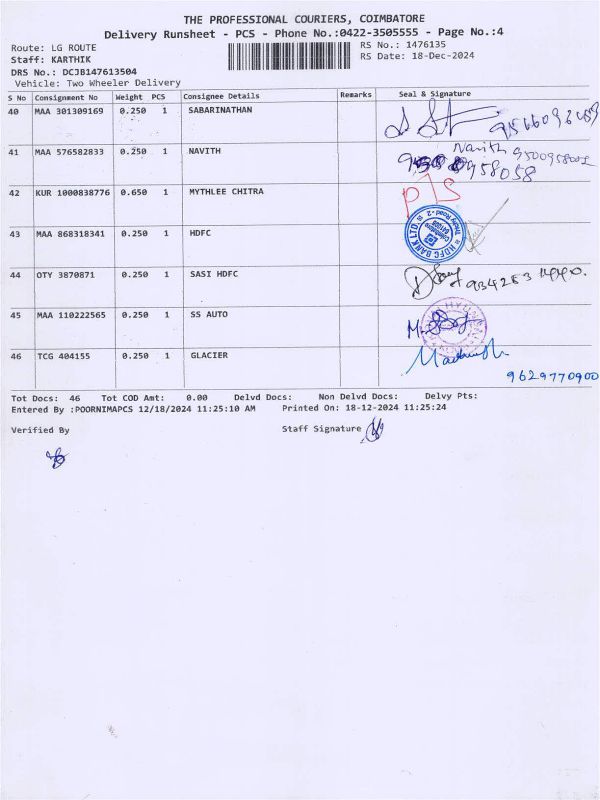 THE PROFESSIONAL COURIERS, COIMBATORE
Delivery Runsheet - PCS - Phone No.:0422-3505555 - Page No.:4
Route: LG ROUTE
RS No.: 1476135
Staff: KARTHIK
RS Date: 18-Dec-2024
DRS No.: DCJB147613504
Vehicle: Two Wheeler Delivery
S No Consignment No Weight PCS Consignee Details Remarks Seal & Signature
40 MAA 301309169 0.250 1 SABARINATHAN
41 MAA 576582833 0.250 1 NAVITH Navith
958058
42 KUR 1000838776 0.650 1 MYTHLEE CHITRA P/S
43 MAA 868318341 0.250 1 HDFC HDFC BANK LTD.
44 OTY 3870871 0.250 1 SASI HDFC
45 MAA 110222565 0.250 1 SS AUTO
46 TCG 404155 0.250 1 GLACIER
9629770900
Tot Docs: 46 Tot COD Amt: 0.00 Delvd Docs: Non Delvd Docs: Delvy Pts:
Entered By :POORNIMAPCS 12/18/2024 11:25:10 AM Printed On: 18-12-2024 11:25:24
Verified By Staff Signature